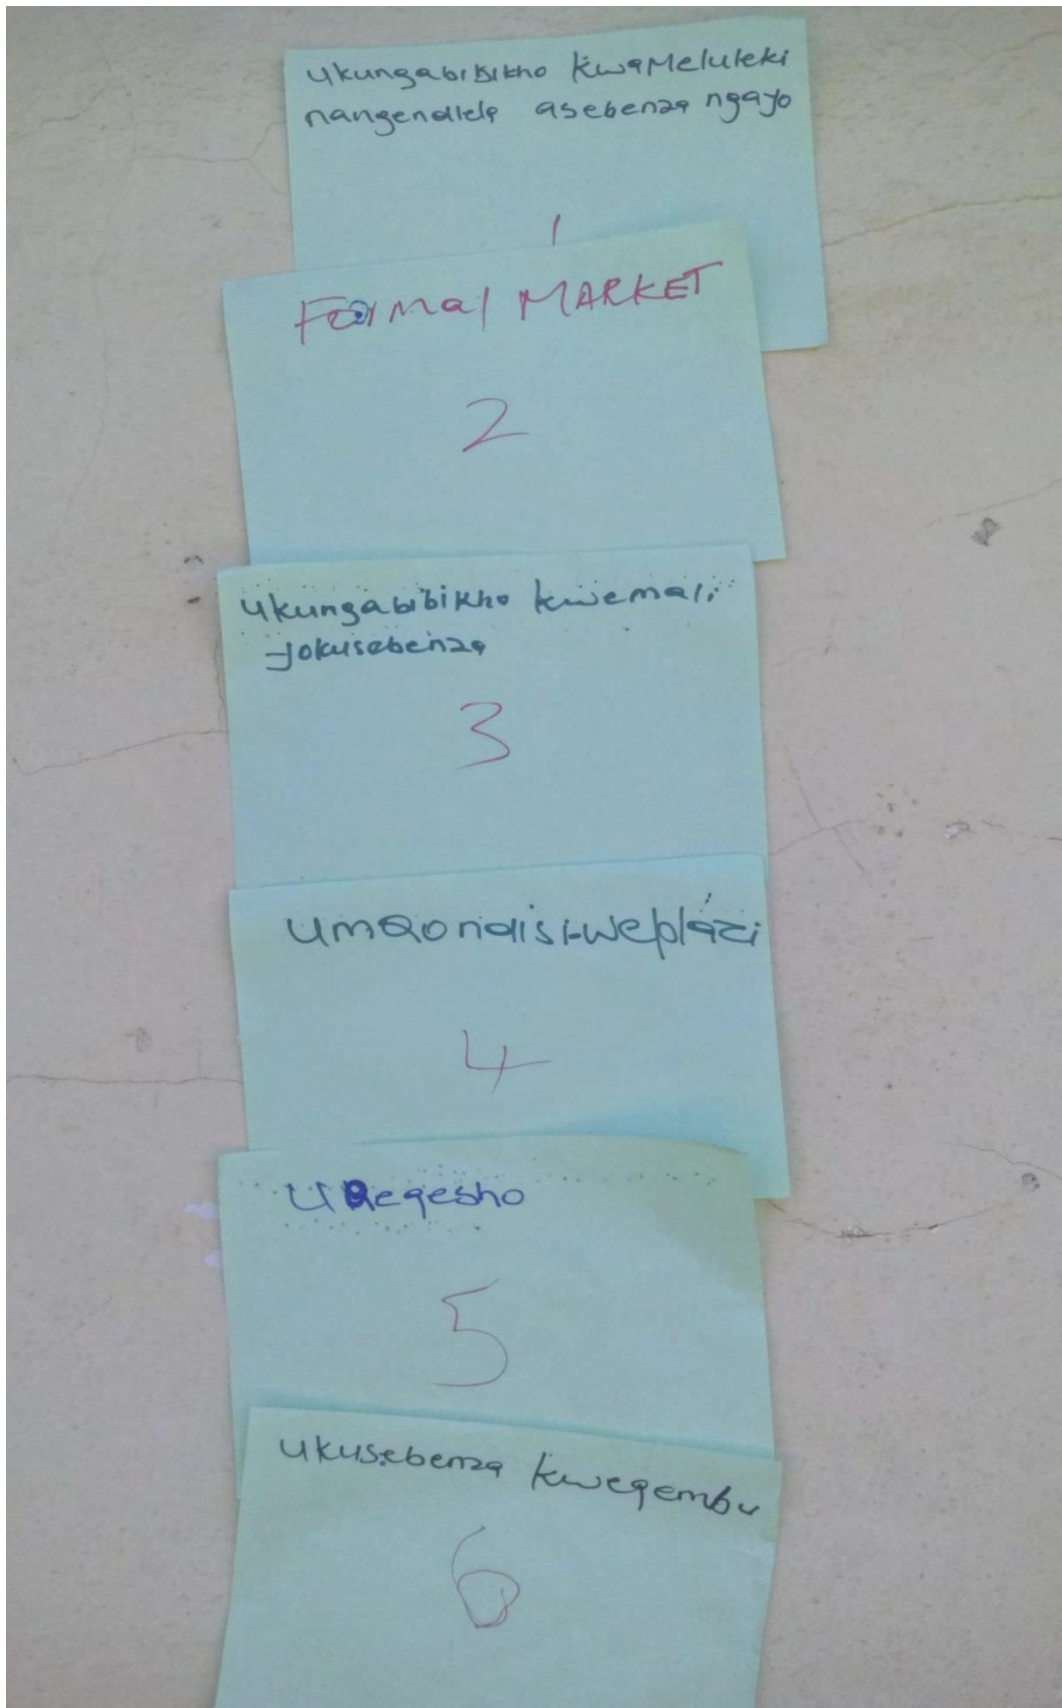 ukungabibikho kwaMeluleki
nangendlela asebenza ngayo
1
Formal MARKET
2
ukungabibikho kwemali
yokusebenza
3
umQondisi-weplazi
4
uQeqesho
5
ukusebenza kweqembu
6